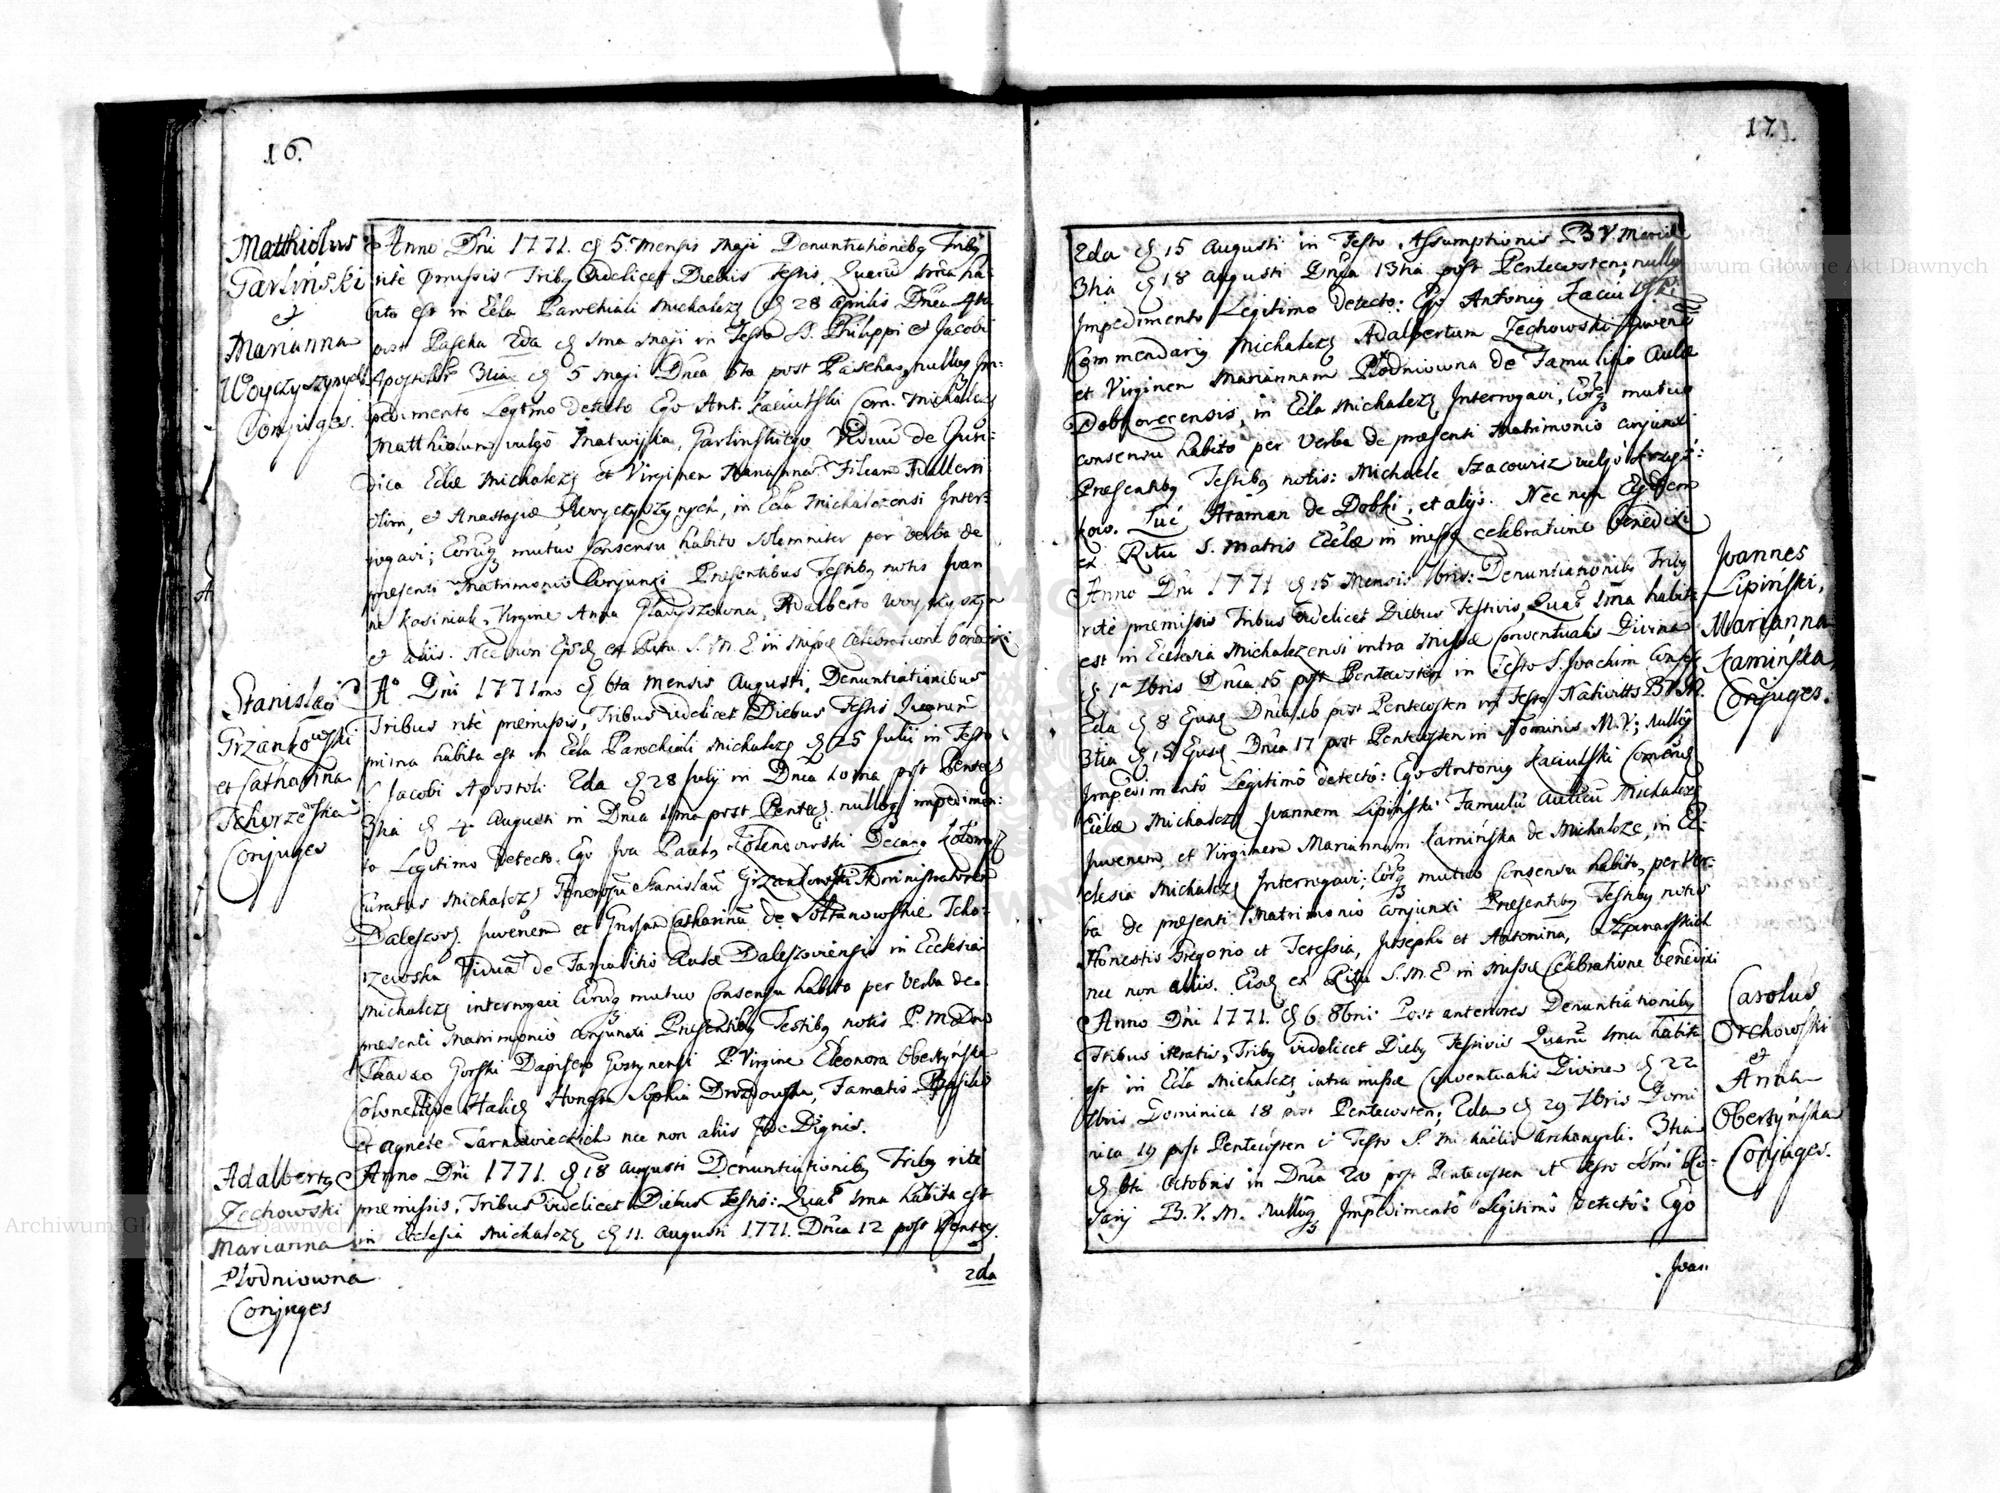 16.
Matthiolus
Garlinski
et
Marianna
Woyczyszynych
Conjuges.
Anno Dni 1771. d 5. Mensis Maji Denuntiationibq Tribq
ritè pmissis Tribq Videlicet Diebus Festis, Quarũ 1ma ha-
bita est in Ecla Parochiali Michalcz d 28 Aprilis Dnica 4ta
post Pascha 2da d 1ma Maji in Festo S. Philippi et Jacobi
Apostolor 3tia d 5 Maji Dnica 5ta post Pascha, nulloq Im-
pedimento Legitmo detecto Ego Ant. Łaciutski Com. Michalcz
Matthiolum vulgo Matwijka Garlinskiego Viduũ de Juri-
dica Eclæ Michalcz et Virginem Mariannã Filiam Wallerii
olim, et Anastasiæ Woyczyszynych, in Ecla Michalczensi Inter-
rogavi; Eorũq mutuo Consensu habito solemniter per verba de
presenti Matrimonio Conjunxi Presentibus Testibq notis Jvan
ne Kosiniak, Virgine Anna Gładyszowna, Adalberto Woyczyszyn
et aliis. Nec non Eosd ex Ritu S. M. E. in Missæ Celebratione benedixi
Stanislaũs
Grzankowski
et Catharina
Tchorzewska
Conjuges
Aº Dni 1771mo d 6ta Mensis Augusti, Denuntiationibus
Tribus ritè præmissis, Tribus videlicet Diebus Festis Quarum
prima habita est in Ecla Parochiali Michalcz d 25 Julii in Festo
S Jacobi Apostoli 2da d 28 Julij in Dnica 10ma post Pentec
3tia d 4 Augusti in Dnica 11ma post Pentec. nulloq impedimen-
to Legitimo detecto. Ego Paulq Kołendowski Decanq
Curatus Michalcz Generosũ Stanislaũ Grzankowski Administratorem
Daleszov. Juvenem et Catharinã de Sołtanowskie Tcho-
rzewska Viduã de Famulitio Aulæ Daleszoviensis in Ecclesia
Michalcz interrogavi Eorũq mutuo Consensu habito per verba de
præsenti Matrimonio conjunxi Presentibq Testibq notis P. M Dno
Gorski Dapifero Gostynensi P. Virgine Eleonora Obertyńska
Halic Sophia Drozdowska, Famatis Basilio
et Agnete Tarnawieckich nec non aliis Fide Dignis.
Adalbertq
Zechowski
Marianna
Płodniowna
Conjuges
Anno Dni 1771. d 18 Augusti Denuntiationibq Tribq ritè
præmissis, Tribus videlicet Diebus Festis: Quarũ 1ma habita est
in Ecclesia Michalcz d 11. Augusti 1771. Dnica 12 post Pentec.
2da
17.
2da d 15 Augusti in Festo Assumptionis B. V. Mariæ
3tia d 18 Augusti Dnica 13tia post Pentecosten; nulloq
Impedimento Legitimo detecto: Ego Antoniq Łaciutski
Commendariq Michalcz Adalbertum Zechowski Juvenẽ
et Virginem Mariannam Płodniowna de Famulitio Aulæ
Dobkovecensis, in Ecla Michalcz Interrogavi, Eorũq mutuo
consensu habito per verba de præsenti Matrimonio conjunxi
Præsentibq Testibq notis: Michaele
kow. Łuć Ataman de Dobki, et alijs. Nec non Eosdem
ex Ritu S. Matris Eclæ in missæ celebratione benedixi
Joannes
Lipinski,
Marianna
Kaminska
Conjuges.
Anno Dni 1771 d 15 Mensis 7bris: Denuntiationibq Tribq
ritè præmissis Tribus videlicet Diebus Festivis, Quarũ 1ma habita
est in Ecclesia Michalczensi intra missæ Conventualis Divina
d 1ª 7bris Dnica 15 post Pentecosten in Festo S. Joachim
2da d 8 Ejusd Dnica 16 post Pentecosten in Festo Nativitts B. V. M.
3tia d 15 Ejusd Dnica 17 post Pentecosten in Nominis M. V; Nulloq
Impedimentô Legitimô detectô: Ego Antoniq Łaciutski Comend
Eclæ Michalcz Joannem Lipinski Famulũ Aulicũ Michalcz
Juvenem, et Virginem Mariannam Kamińska de Michalcze, in Ec-
clesia Michalcz Interrogavi; Eorũq mutuo Consensu habito, per Ver-
ba de præsenti Matrimonio Conjunxi Præsentibq Testibq notis
Honestis Gregorio et Teressia, Josepho et Antonina,
nec non aliis. Eosd ex Ritu S. M. E in Missæ Celebratione benedixi
Carolus
Orchowski
et
Anna
Obertyńska
Conjuges.
Anno Dni 1771. d 6. 8bris Post anteriores Denuntiationibq
Tribus iteratis, Tribq videlicet Diebq Festivis Quarũ 1ma habita
est in Ecla Michalcz intra missæ Conventualis Divina d 22
7bris Dominica 18 post Pentecosten; 2da d 29 7bris Domi
nica 19 post Pentecosten i Festo S. Michaelis Archangeli. 3tia
d 6ta Octobris in Dnica 20 post Pentecosten et Festo
sarij B. V. M. Nulloq Impedimentô Legitimô detectô: Ego
Joan